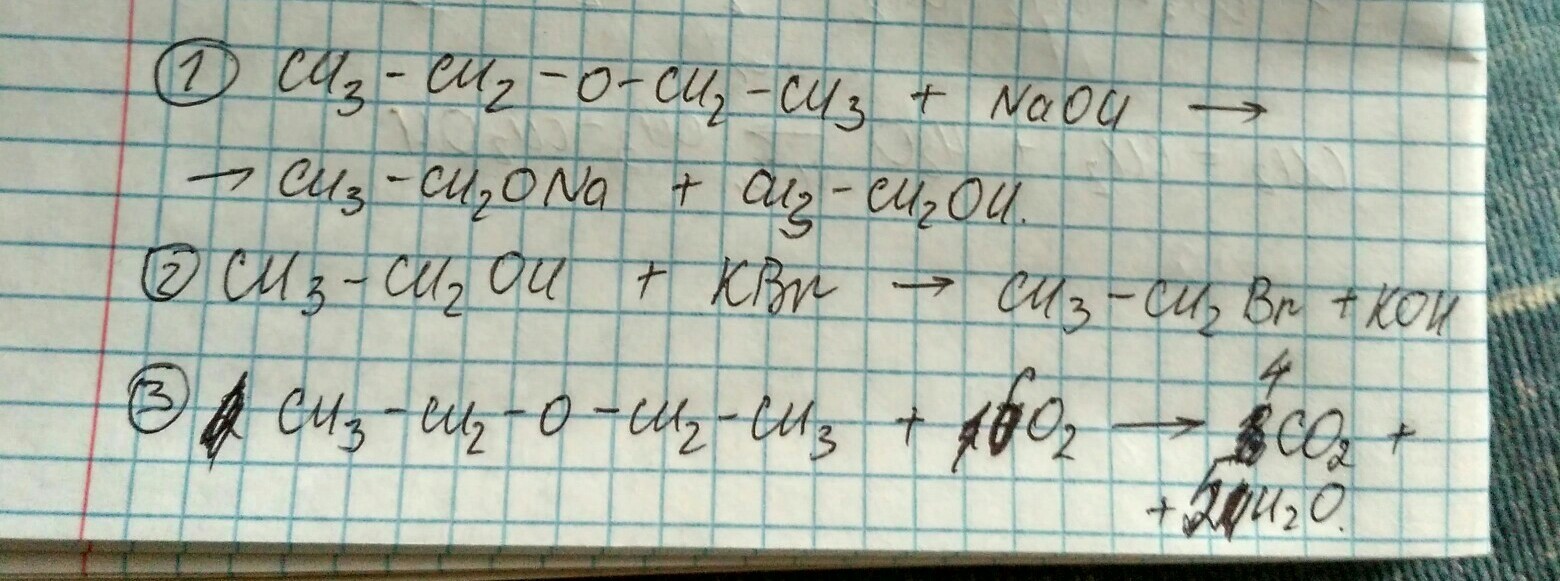 ① CH₃ - CH₂ - O - CH₂ - CH₃ + NaOH →
→ CH₃ - CH₂ONa + CH₃ - CH₂OH.
② CH₃ - CH₂OH + KBr → CH₃ - CH₂Br + KOH
③ CH₃ - CH₂ - O - CH₂ - CH₃ + 6O₂ → 4CO₂ +
+ H₂O.